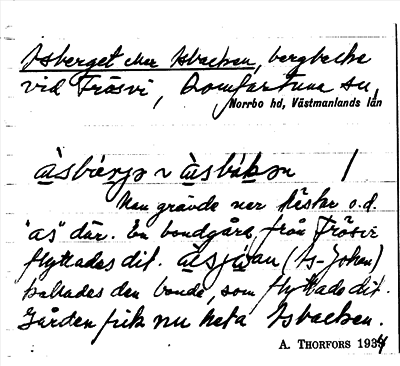 Asberget eller Asbacken, bergbacke
vid Fräsvi, Romfartuna sn,
Norrbo hd, Västmanlands län
àsbærjə ~ àsbákən /
Man grävde ner fläskr o.d.
"as" där. En bondgård från Fräsvi
flyttades dit. àsjuan (As-Johan)
kallades den bonde, som flyttade dit.
Gården fick nu heta Asbacken.
A. THORFORS 1934